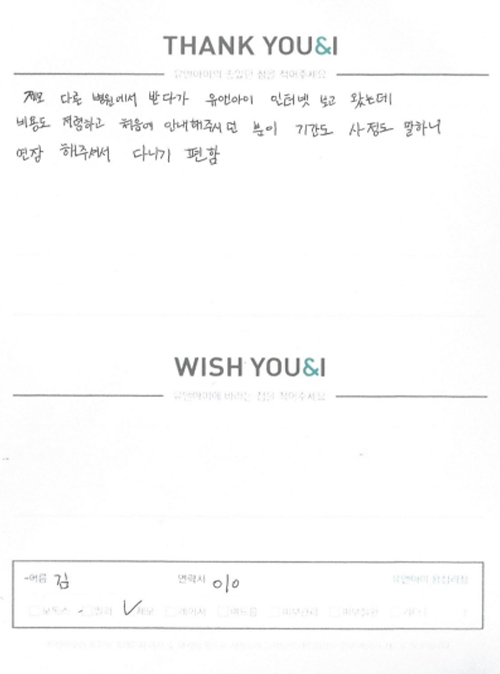 THANK YOU&I
유앤아이의 좋았던 점을 적어주세요
제모 다른 병원에서 받다가 유앤아이 인터넷 보고 왔는데
비용도 저렴하고 처음에 안내해주시던 분이 기간도 사정도 말하니
연장 해주셔서 다니기 편함
WISH YOU&I
유앤아이에 바라는 점을 적어주세요
이름 김 연락처 010
보톡스 필러 제모 레이저